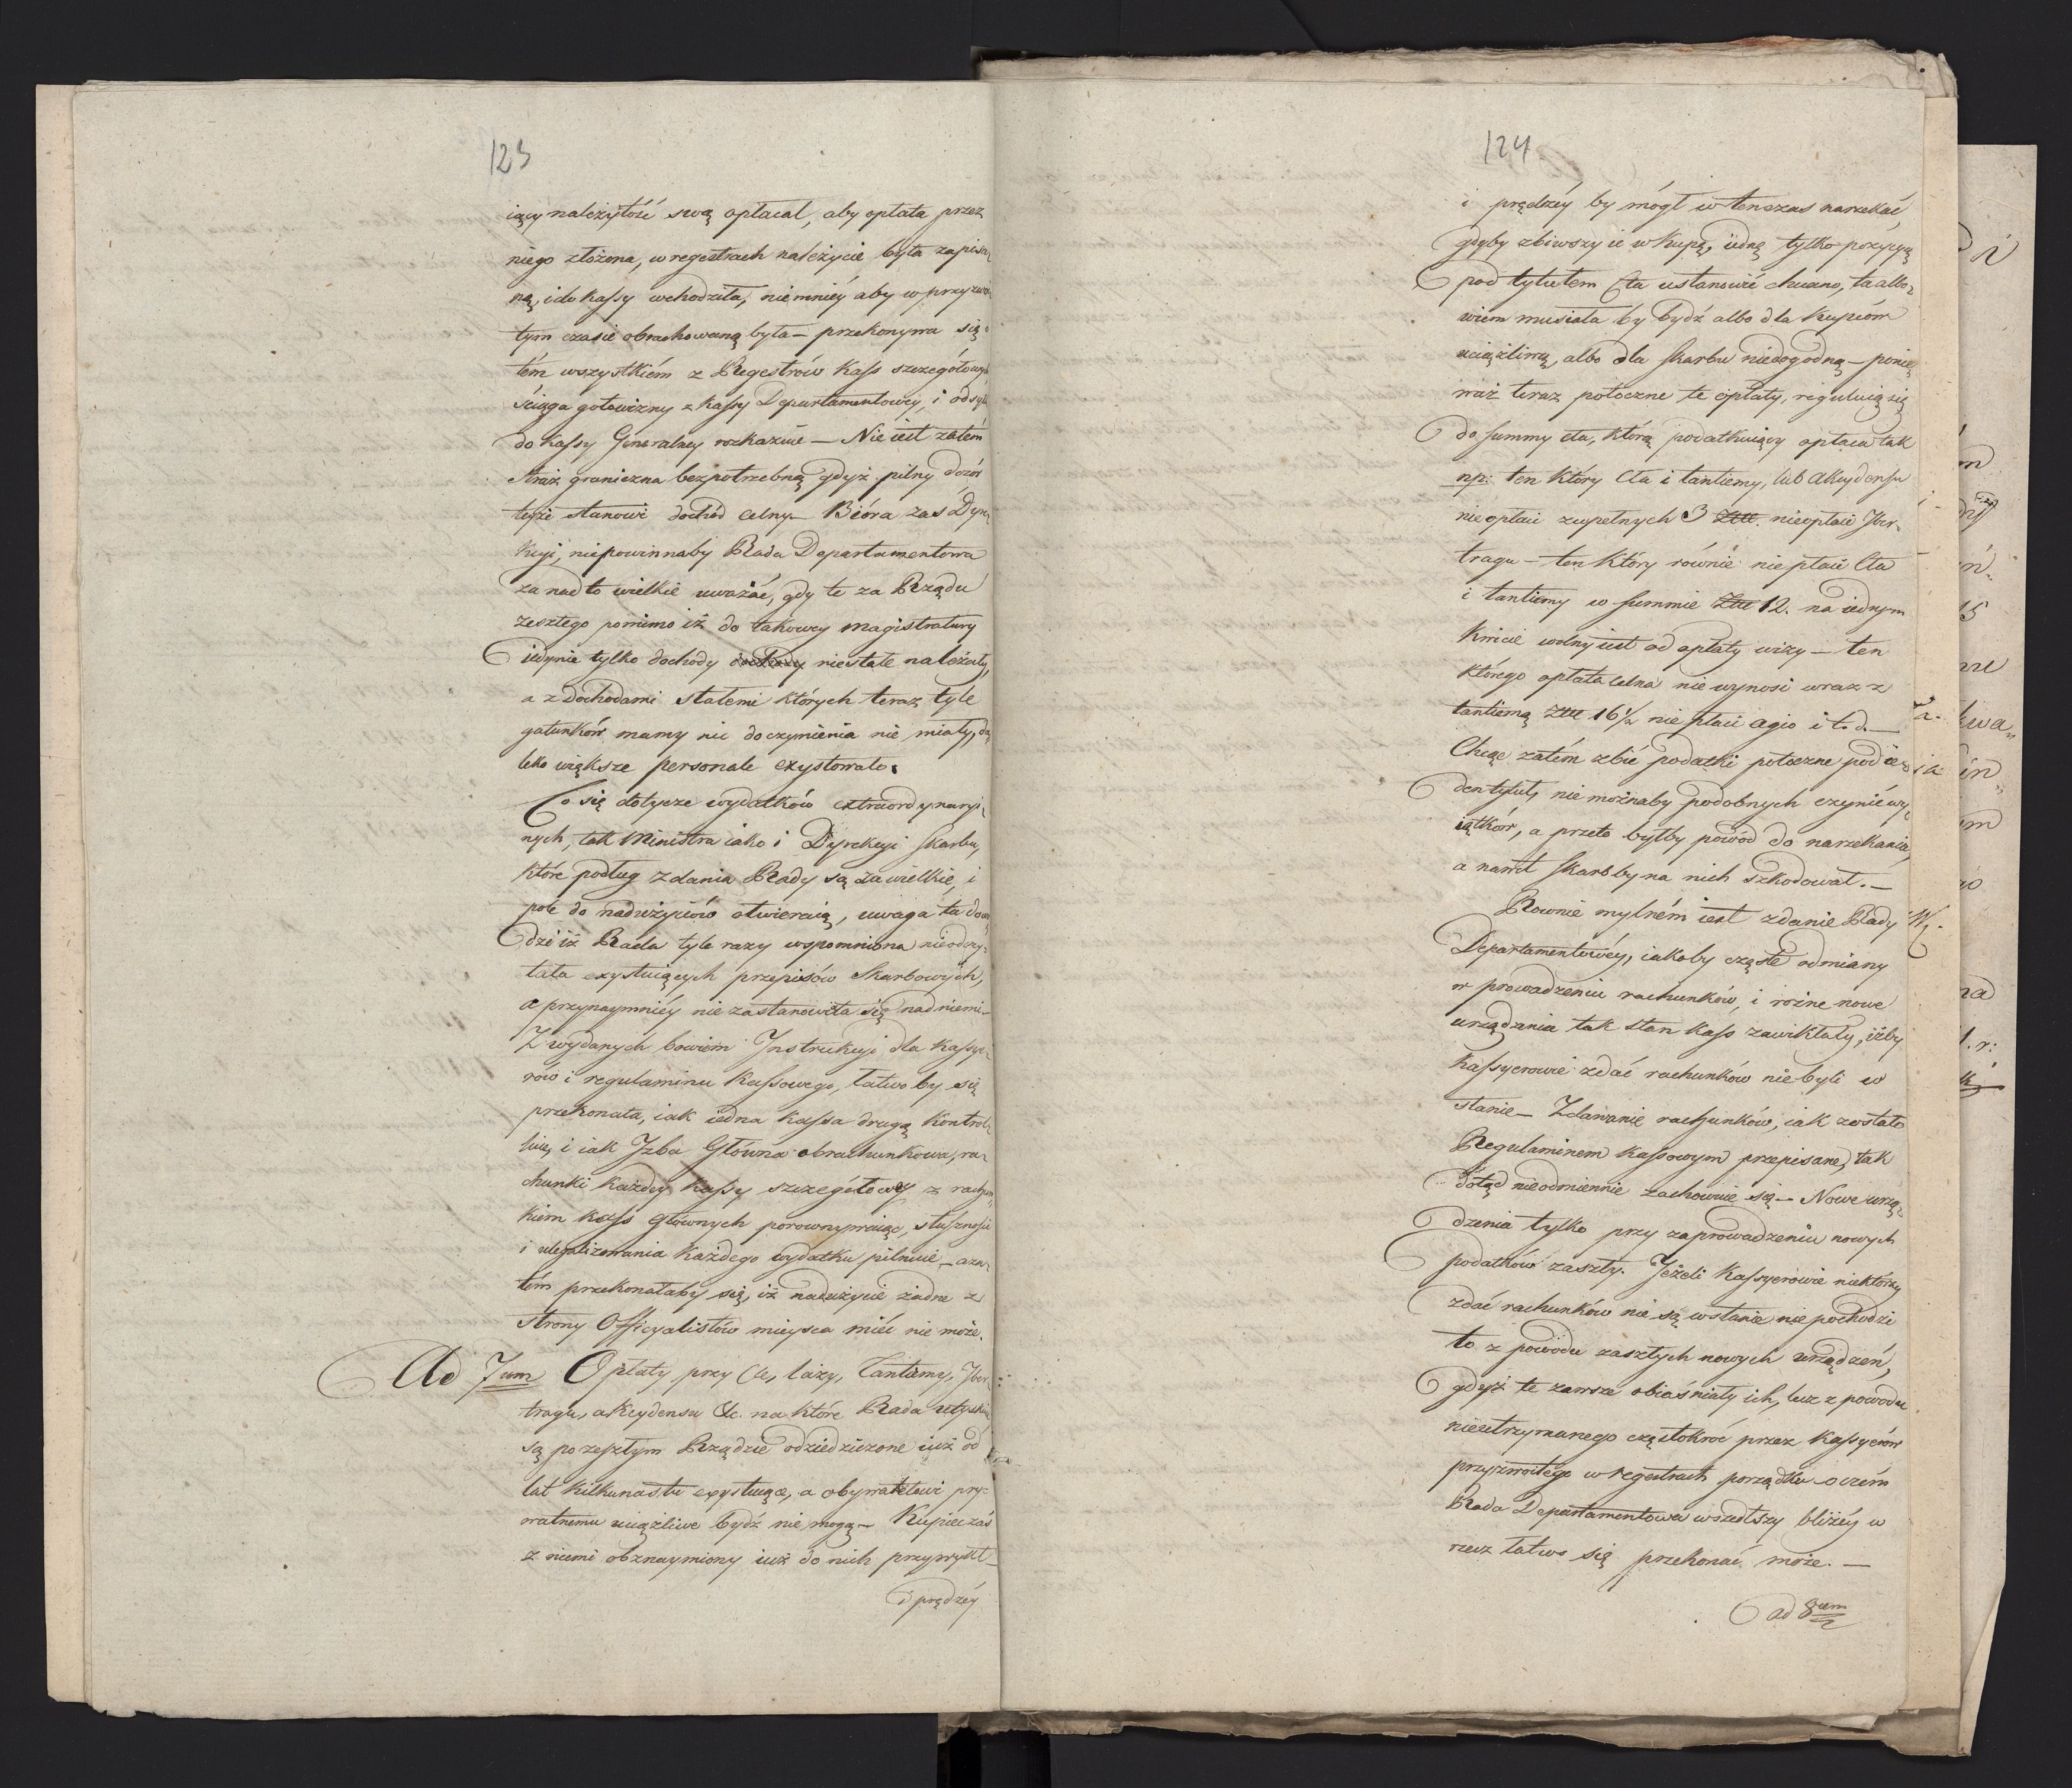 123
iący należytość swą opłacał, aby opłata przez
niego złożona, w regestrach należycie była zapisa„
ną, i do kassy wchodziła, niemniéy aby w przyzwoi„
tym czasie obrachowaną była — przekonywa się o
tém wszystkiém z Regestrów Kass szczegółowych
ściąga gotowizny z kassy Departamentowéy, i odsyła
do kassy Generalnéy rozkazuie — Nie iest zatém
straż graniczna bezpotrzebną gdyż pilny dozór
teyże stanowi dochód celny — Bióra zaś Dyre„
kcyi, niepowinnaby Rada Departamentowa
za nadto wielkie uważać, gdy te za Rządu
zeszłego pomimo iż do takowey magistratury
iedynie tylko dochody niestałe należały,
a z dochodami stałemi których teraz tyle
gatunków mamy nic do czynienia nie miały, da„
leko większe personale exystowało.
Co się dotycze wydatków extraordynaryi„
nych, tak Ministra iako i Dyrekcyi Skarbu,
które podług zdania Rady są za wielkie, i
pole do nadużyciów otwieraią, uwaga ta dowo„
dzi iż Rada tyle razy wspomniona nieodczy„
tała exystuiących przepisów Skarbowych,
a przynaymniéy nie zastanowiła się nad niemi —
Z wydanych bowiem Instrukcyi dla Kassye„
rów i regulaminu Kassowego, łatwo by się
przekonała, iak iedna kassa drugą kontrol„
luie, i iak Izba Główna obrachunkowa, ra„
chunki każdey kassy szczegółowey z rachun„
kiem kass głównych porownywaiąc, słuszności
i ulegalizowania każdego wydatku pilnuie — a za„
tém przekonałaby się, iż nadużycie żadne z
strony Officyalistów mieysca miéc nie może.
Ad 7um Opłaty przy Cle, laży, Tantiemy, Iber„
tragu, akcydensu &c. na które Rada utyskuie
są po zeszłym Rządzie odziedziczone iuż od
lat kilkunastu exystuiące, a obywatelowi pry„
watnemu uciążliwe bydź nie mogą — Kupiec zaś
z niemi obznaymiony iuż do nich przywykł —
i prędzéy
124
i prędzéy by mógł w tenczas narzekać,
gdyby zbiwszy ie w kupę, iedną tylko pozycyą
pod tytułem Cła ustanowić chciano, ta albo„
wiem musiała by bydź albo dla kupców
uciążliwą, albo dla skarbu niedogodną — ponie„
waż teraz potoczne te opłaty, reguluią się
do summy cła, którą podatkuiący opłaca tak
np: ten który Cła i tantiemy, lub akcydensu
nie opłaci zupełnych 3 Złł. nieopłaci Iber„
tragu — ten który równie nie płaci Cła
i tantiemy w summie Złł 12. na iednym
kwicie wolny iest od opłaty wizy — ten
którego opłata celna nie wynosi wraz z
tantiemą Złł 16½ nie płaci agio i t. d. —
Chcąc zatém zbić podatki potoczne pod ie„
den tytuł, nie możnaby podobnych czynić wy„
iątków, a przeto byłby powód do narzekania,
a nawet Skarb by na nich szkodował. —
Rownie mylném iest zdanie Rady
Departamentowéy, iakoby częste odmiany
w prowadzeniu rachunków, i rożne nowe
urządzenia tak stan kass zawikłały, iżby
kassyerowie zdać rachunków nie byli w
stanie — Zdawanie rachunków, iak zostało
Regulaminem kassowym przepisane, tak
dotąd nieodmiennie zachowuie się — Nowe urzą„
dzenia tylko przy zaprowadzeniu nowych
podatków zaszły. Jeżeli Kassyerowie niektórzy
zdać rachunków nie są w stanie nie pochodzi
to z powodu zaszłych nowych urządzeń,
gdyż te zawsze obiaśniały ich, lecz z powodu
nieutrzymanego częstokroć przez Kassyerów
przyzwoitego w regestrach porządku — o czém
Rada Departamentowa wszedłszy bliżéy w
rzecz łatwo się przekonać może. —
ad 8um